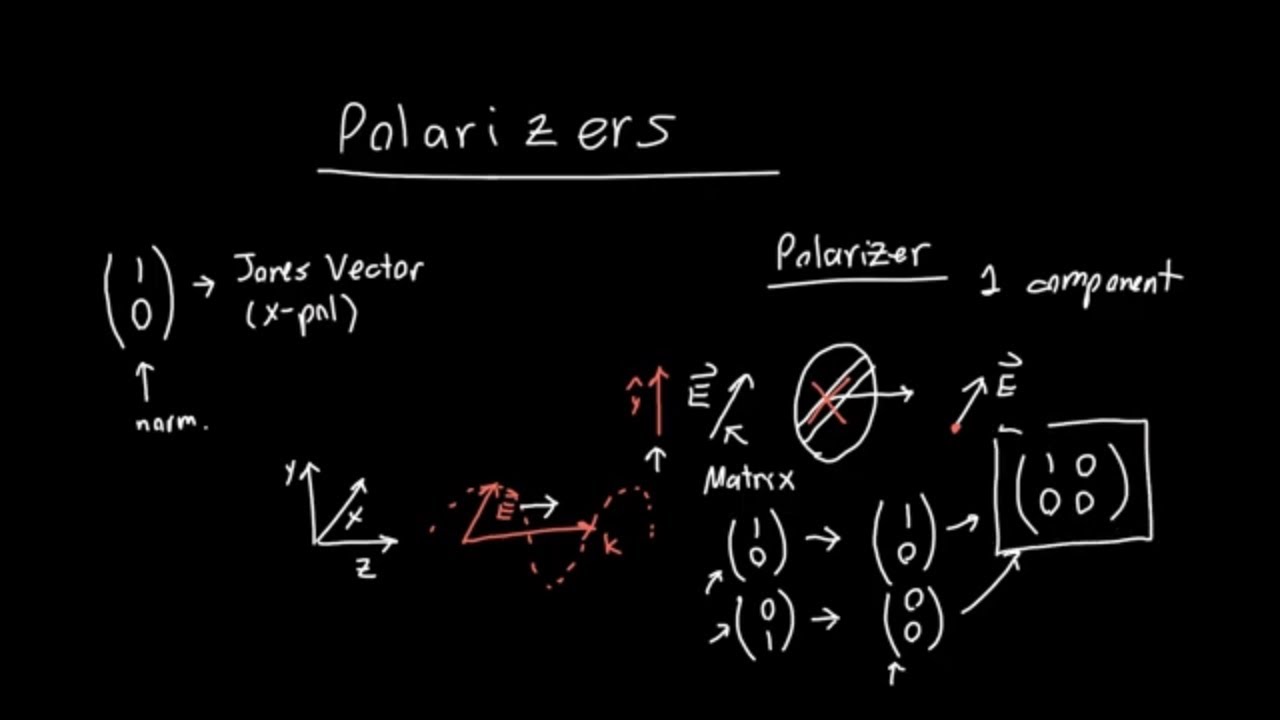 Polarizers
(1 0) → Jones Vector
(x-pol)
↑
norm.
y
x
z
E
k
Polarizer
1 component
ŷ
E
E
Matrix
(1 0) → (1 0) →
(0 1) → (0 0)
(1 0
0 0)